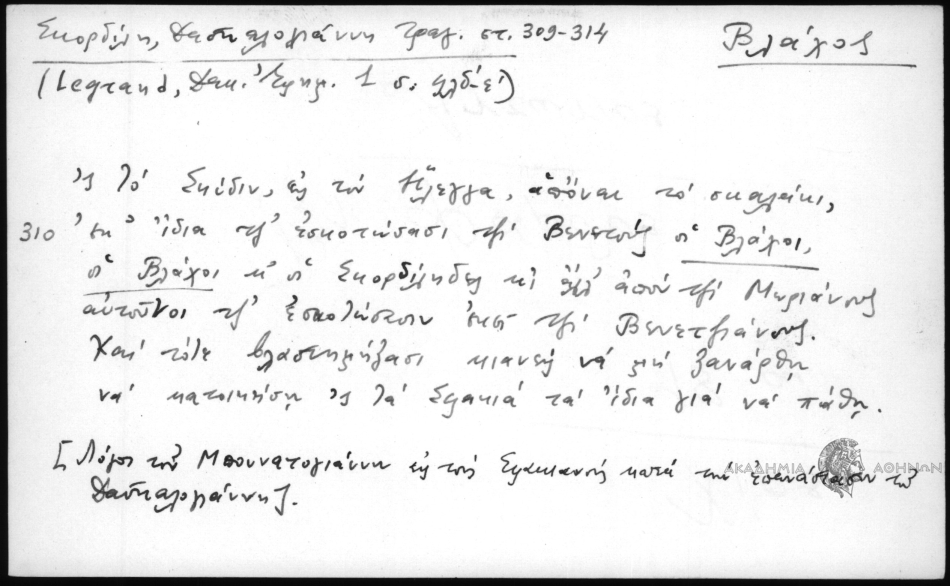 Σκορδίλη, Δασκαλογιάννη Τραγ. στ. 309-314
Βλάχος
(Legrand, Δακ. Ἐφημ. 1 σ.
'ς τό Σκίδιν, εἰς τόν Ἴλεγγα, ἀπόναι τό σκαλάκι,
310 ἐκ' ἴδια τζ' ἐσκοτώσασι τζί Βενετούς οἱ Βλάχοι,
οἱ Βλάχοι κ' οἱ Σκορδίληδες κι ἄλλ' ἀπού τζί Μωριάνους
αὐτοῦνοι τζ' ἐσκοτώσασιν ἐκεῖ τζί Βενετζιάνους.
Καί τότε βλαστημήξασι κιανείς νά μή ξανάρθῃ
νά κατοικήσῃ 'ς τά Σφακιά τά ἴδια γιά νά πάθῃ.
[Λόγοι τοῦ Μπουνατογιάννη εἰς τούς Σφακιανούς κατά τήν ἐπανάστασιν τοῦ
Δασκαλογιάννη].
ΑΚΑΔΗΜΙΑ ΑΘΗΝΩΝ